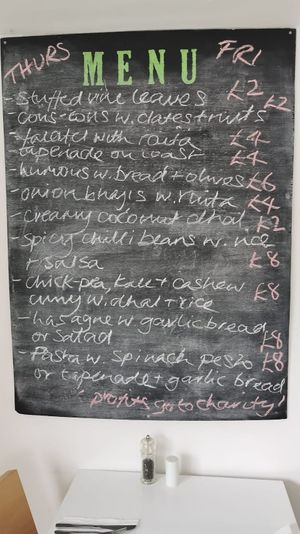 THURS MENU FRI
- stuffed vine leaves £2
- cous-cous w. dates + nuts £2
- falafel with raita £4
tapenade on toast £4
- humous w. bread + olives £6
- onion bhajis w. raita £4
- creamy coconut dhal £2
- spicy chilli beans w. rice
+ salsa £8
- chick-pea, kale + cashew
curry w. dhal + rice £8
- lasagne w. garlic bread
or salad £8
- Pasta w. spinach pesto £8
or tapenade + garlic bread
'profits go to charity!'